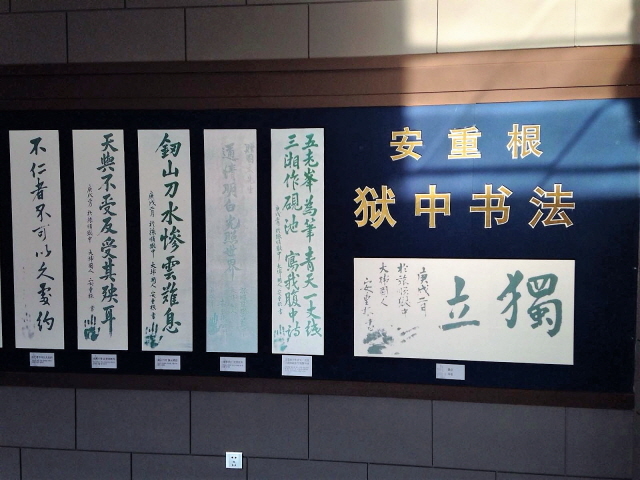 安重根
狱中书法
獨立
庚戌二月
於旅順獄中
大韓國人
安重根書
五老峯為筆 青天一丈紙
三湘作硯池 寫我腹中詩
庚戌二月 於旅順獄中 大韓國人 安重根 書
通情明白光照世界
釼山刀水慘雲難息
庚戌二月 於旅順獄中 大韓國人 安重根 書
天與不受反受其殃耳
庚戌二月 於旅順獄中 大韓國人 安重根 書
不仁者不可以久處約